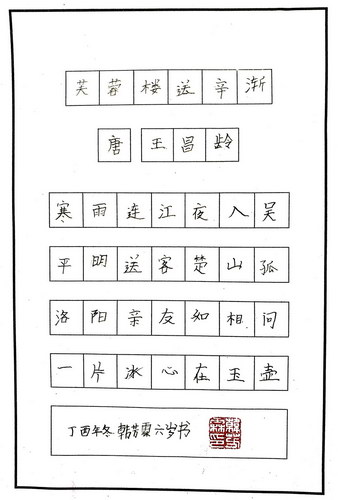 芙蓉楼送辛渐
唐 王昌龄
寒雨连江夜入吴
平明送客楚山孤
洛阳亲友如相问
一片冰心在玉壶
丁酉年冬韩芳霖六岁书